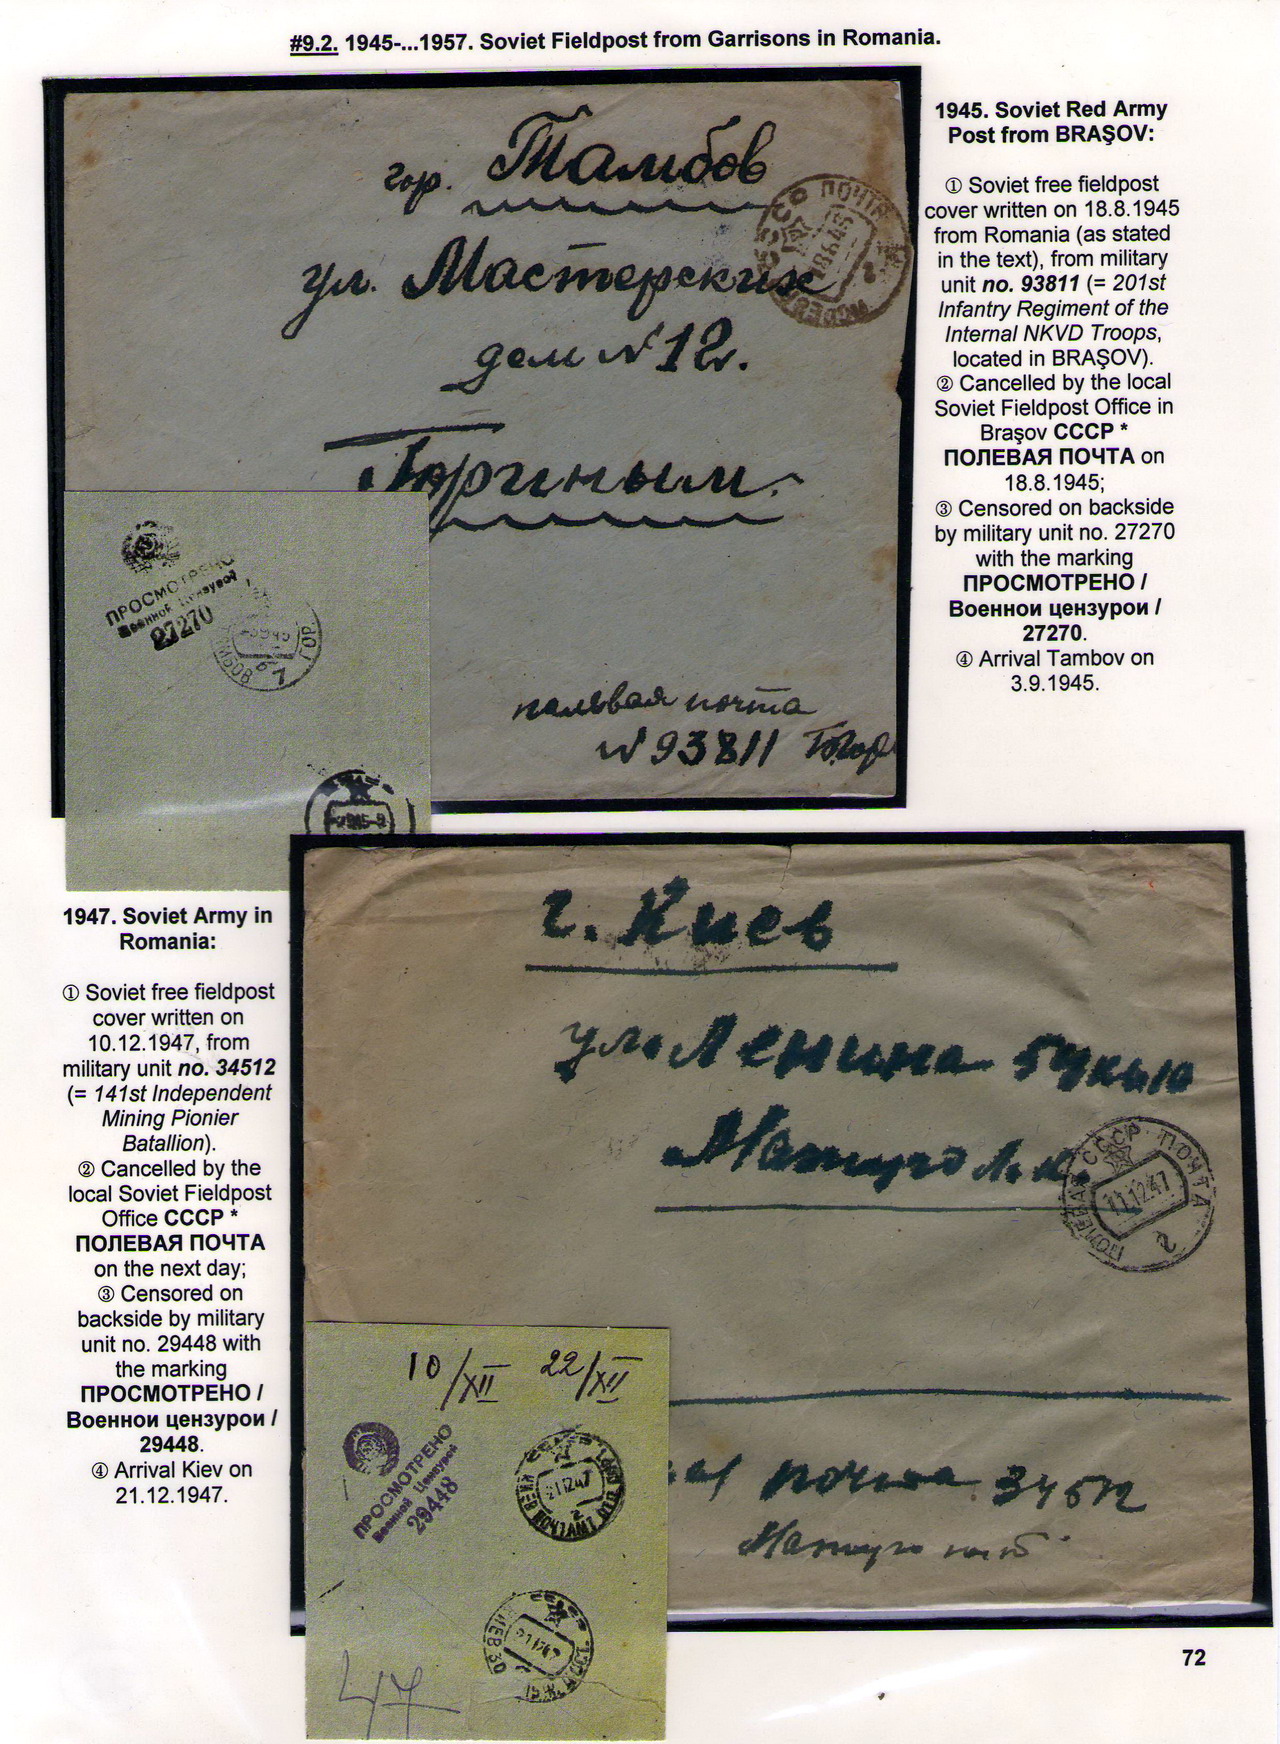 #9.2. 1945-...1957. Soviet Fieldpost from Garrisons in Romania.
1945. Soviet Red Army
Post from BRAŞOV:
① Soviet free fieldpost
cover written on 18.8.1945
from Romania (as stated
in the text), from military
unit no. 93811 (= 201st
Infantry Regiment of the
Internal NKVD Troops,
located in BRAŞOV).
② Cancelled by the local
Soviet Fieldpost Office in
Braşov СССР *
ПОЛЕВАЯ ПОЧТА on
18.8.1945;
③ Censored on backside
by military unit no. 27270
with the marking
ПРОСМОТРЕНО /
Военнои цензурои /
27270.
④ Arrival Tambov on
3.9.1945.
гор. Тамбов
ул. Мастерских
дом N 12.
Горгиным.
полевая почта
N 93811
ПОЧТА
18.8.45
ПРОСМОТРЕНО
Военной Цензурой
27270
ГОР
1947. Soviet Army in
Romania:
① Soviet free fieldpost
cover written on
10.12.1947, from
military unit no. 34512
(= 141st Independent
Mining Pionier
Batallion).
② Cancelled by the
local Soviet Fieldpost
Office СССР *
ПОЛЕВАЯ ПОЧТА
on the next day;
③ Censored on
backside by military
unit no. 29448 with
the marking
ПРОСМОТРЕНО /
Военнои цензурои /
29448.
④ Arrival Kiev on
21.12.1947.
г. Киев
ул. Ленина
ПОЛЕВАЯ СССР ПОЧТА
11.12.47
г
почта 34512
10/XII 22/XII
ПРОСМОТРЕНО
Военной Цензурой
29448
КИЕВ ПОЧТАМТ
21.12.47
КИЕВ 30
47
72